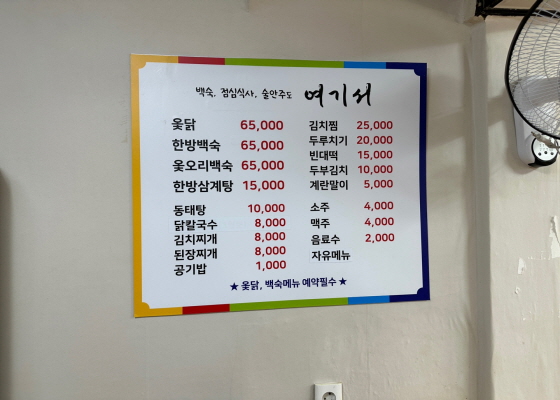 백숙, 점심식사, 술안주도 여기서
옻닭 65,000
한방백숙 65,000
옻오리백숙 65,000
한방삼계탕 15,000
동태탕 10,000
닭칼국수 8,000
김치찌개 8,000
된장찌개 8,000
공기밥 1,000
김치찜 25,000
두루치기 20,000
빈대떡 15,000
두부김치 10,000
계란말이 5,000
소주 4,000
맥주 4,000
음료수 2,000
자유메뉴
★ 옻닭, 백숙메뉴 예약필수 ★